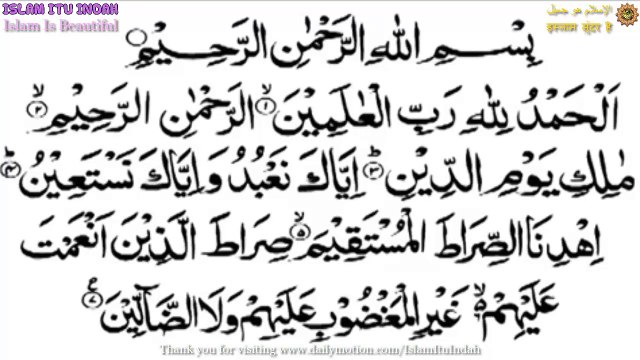 ISLAM ITU INDAH
Islam Is Beautiful
الإسلام هو جميل
इस्लाम सुंदर है
بِسْمِ اللهِ الرَّحْمٰنِ الرَّحِيْمِ
اَلْحَمْدُ لِلّٰهِ رَبِّ الْعٰلَمِيْنَ ۙ﴿۱﴾ الرَّحْمٰنِ الرَّحِيْمِ ۙ﴿۲﴾
مٰلِكِ يَوْمِ الدِّيْنِ ؕ﴿۳﴾ اِيَّاكَ نَعْبُدُ وَاِيَّاكَ نَسْتَعِيْنُ ؕ﴿۴﴾
اِهْدِنَا الصِّرَاطَ الْمُسْتَقِيْمَ ۙ﴿۵﴾ صِرَاطَ الَّذِيْنَ اَنْعَمْتَ
عَلَيْهِمْ ۙ﴿۶﴾ غَيْرِ الْمَغْضُوْبِ عَلَيْهِمْ وَلَا الضَّآلِّيْنَ ﴿۷﴾
Thank you for visiting www.dailymotion.com/IslamItuIndah